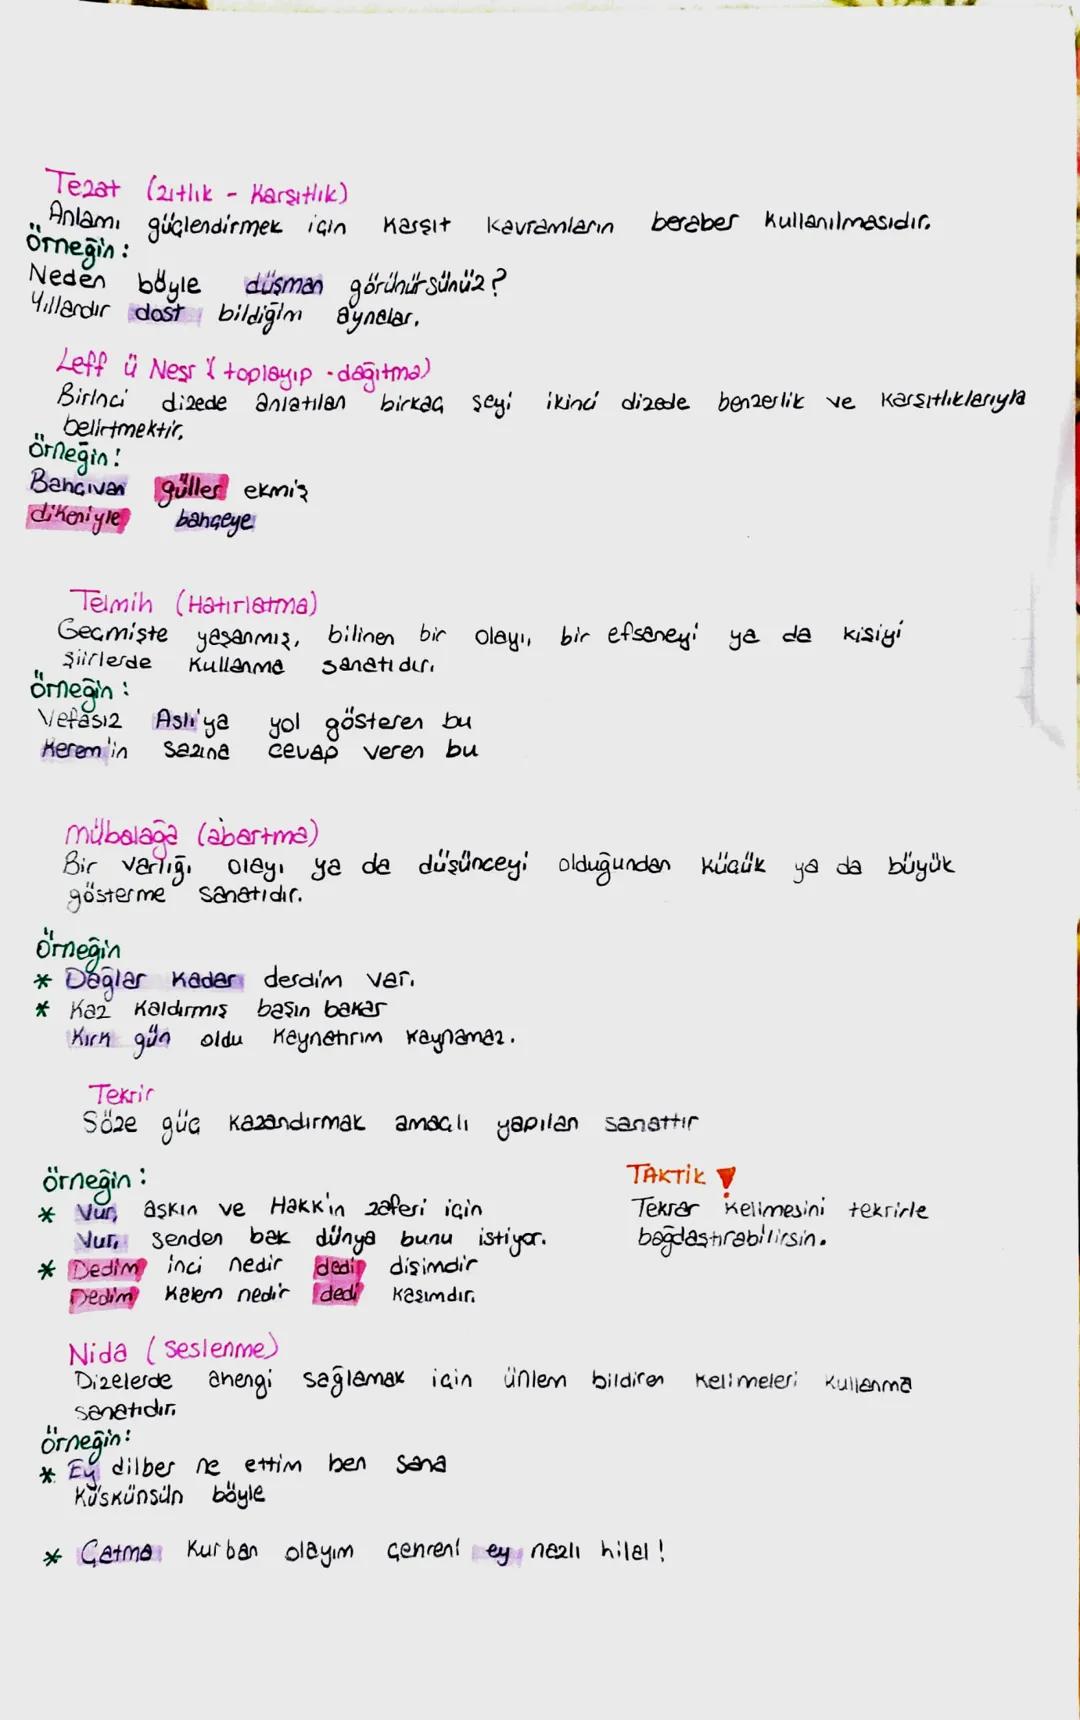 Tezat (zıtlık - Karşıtlık)
Anlamı güçlendirmek için karşıt kavramların beraber kullanılmasıdır.
Örneğin:
Neden böyle düşman görünürsünüz?
Yıllardır dost bildiğim aynalar.
Leff ü Neşr (toplayıp - dağıtma)
Birinci dizede anlatılan birkaç şeyi ikinci dizede benzerlik ve karşıtlıklarıyla
belirtmektir.
Örneğin:
Bahçıvan güller ekmiş
dikeniyle bahçeye
Telmih (Hatırlatma)
Geçmişte yaşanmış, bilinen bir olayı, bir efsaneyi ya da kişiyi
şiirlerde kullanma sanatıdır.
Örneğin:
Vefasız Aslı'ya yol gösteren bu
Kerem'in sazına cevap veren bu
Mübalağa (abartma)
Bir varlığı olayı ya da düşünceyi olduğundan küçük ya da büyük
gösterme sanatıdır.
Örneğin
* Dağlar kadar derdim var.
* Kaz kaldırmış başın bakar
Kırk gün oldu kaynatırım kaynamaz.
Tekrir
Söze güç kazandırmak amaçlı yapılan sanattır
Örneğin:
* Vur, aşkın ve Hakk'ın zaferi için
Vur, senden bak dünya bunu istiyor.
* Dedim inci nedir dedi dişimdir
Dedim kalem nedir dedi kaşımdır.
TAKTİK !
Tekrar kelimesini tekrirle
bağdaştırabilirsin.
Nida (seslenme)
Dizelerde ahengi sağlamak için ünlem bildiren kelimeleri kullanma
sanatıdır.
Örneğin:
* Ey dilber ne ettim ben sana
Küskünsün böyle
* Çatma kurban olayım çehreni ey nazlı hilal!